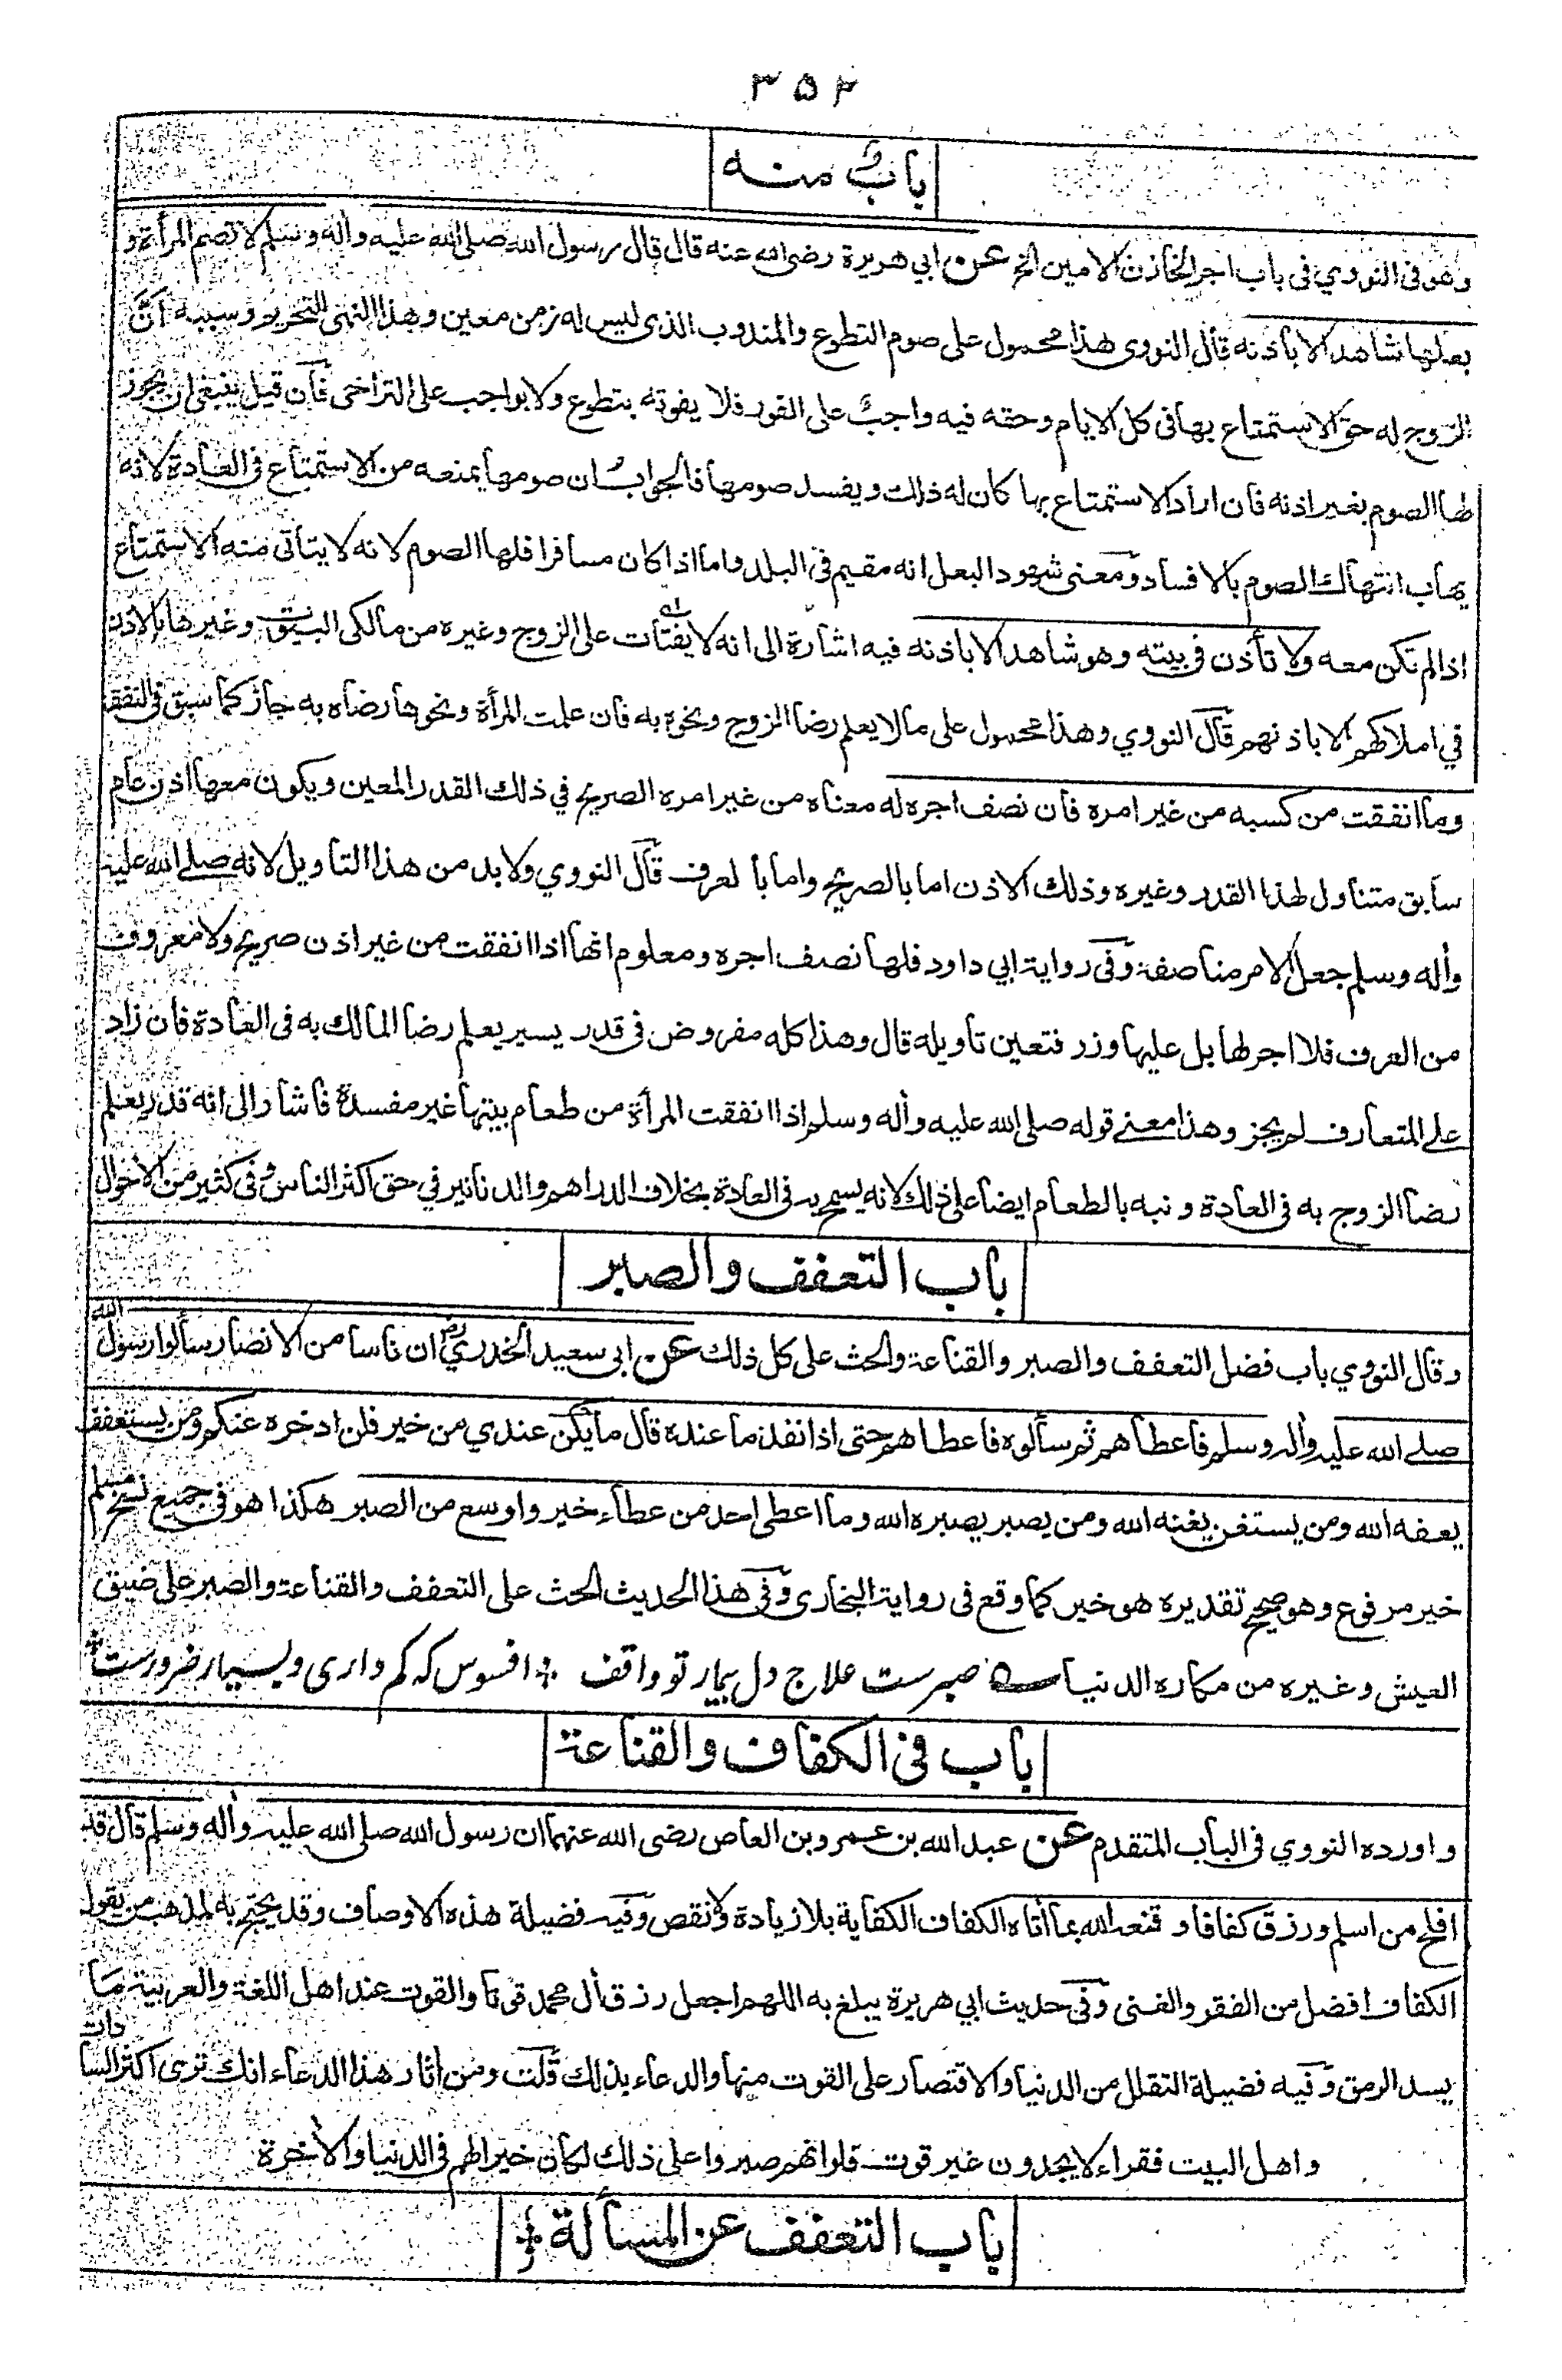 ۳۵۲
باب منه
وهو في النووي في باب اجر الخازن الامين الخ عن ابي هريرة رضي الله عنه قال قال رسول الله صلى الله عليه واله وسلم لا تصم المرأة و
بعلها شاهد الا باذنه قال النووي هذا محمول على صوم التطوع والمندوب الذي ليس له زمن معين وهذا النهي للتحريم وسببه انّ
الزوج له حق الاستمتاع بها في كل الايام وحقه فيه واجبٌ على الفور فلا يفوته بتطوع ولا بواجب على التراخي فان قيل ينبغي ان يجوز
لها الصوم بغير اذنه فان اراد الاستمتاع بها كان له ذلك ويفسد صومها فالجوابُ ان صومها يمنعه من الاستمتاع في العادة لانه
يهاب انتهاك الصوم بالافساد ومعنى شهود البعل انه مقيم في البلد واما اذا كان مسافرا فلها الصوم لانه لا يتأتى منه الاستمتاع
اذا لم تكن معه ولا تأذن في بيته وهو شاهد الا باذنه فيه اشارة الى انه لا يفتات على الزوج وغيره من مالكي البيوت وغيرها بالاذن
في املاكهم الا باذنهم قال النووي وهذا محمول على ما لا يعلم رضا الزوج ونحوه به فان علمت المرأة ونحوها رضاه به جاز كما سبق في النفقة
وما انفقت من كسبه من غير امره فان نصف اجره له معناه من غير امره الصريح في ذلك القدر المعين ويكون معها اذن عام
سابق متناول لهذا القدر وغيره وذلك الاذن اما بالصريح واما بالعرف قال النووي ولا بد من هذا التأويل لانه صلى الله عليه
واله وسلم جعل الامر مناصفة وفي رواية ابي داود فلها نصف اجره ومعلوم انها اذا انفقت من غير اذن صريح ولا معروف
من العرف فلا اجر لها بل عليها وزر فتعين تأويله قال وهذا كله مفروض في قدر يسير يعلم رضا المالك به في العادة فان زاد
على المتعارف لم يجز وهذا معنى قوله صلى الله عليه واله وسلم اذا انفقت المرأة من طعام بيتها غير مفسدة فاشار الى انه قدر يعلم
رضا الزوج به في العادة ونبه بالطعام ايضا على ذلك لانه يسمح به في العادة بخلاف الدراهم والدنانير في حق اكثر الناس وفي كثير من الاحوال
باب التعفف والصبر
وقال النووي باب فضل التعفف والصبر والقناعة والحث على كل ذلك عن ابي سعيد الخدري رض ان ناسا من الانصار سألوا رسول الله
صلى الله عليه واله وسلم فاعطاهم ثم سألوه فاعطاهم حتى اذا نفد ما عنده قال ما يكن عندي من خير فلن ادخره عنكم ومن يستعفف
يعفه الله ومن يستغن يغنه الله ومن يصبر يصبره الله وما اعطى احد من عطاء خير واوسع من الصبر هكذا هو في جميع نسخ مسلم
خير مرفوع وهو صحيح تقديره هو خير كما وقع في رواية البخاري وفي هذا الحديث الحث على التعفف والقناعة والصبر على ضيق
العيش وغيره من مكاره الدنيا ؎ صبرست علاج دل بیمار تو واقف ؞ افسوس که کم داری و بسیار ضرورست
باب في الكفاف والقناعة
واورده النووي في الباب المتقدم عن عبد الله بن عمرو بن العاص رضي الله عنهما ان رسول الله صلى الله عليه واله وسلم قال قد
افلح من اسلم ورزق كفافا وقنعه الله بما أتاه الكفاف الكفاية بلا زيادة ولا نقص وفيه فضيلة هذه الاوصاف وقد يحتج به لمذهب من يقول
الكفاف افضل من الفقر والغنى وفي حديث ابي هريرة يبلغ به اللهم اجعل رزق أل محمد قوتا والقوت عند اهل اللغة والعربية ما
يسد الرمق وفيه فضيلة التقلل من الدنيا والاقتصار على القوت منها والدعاء بذلك قلت ومن أثار هذا الدعاء انك ترى اكثر السادات
واهل البيت فقراء لا يجدون غير قوت فلو انهم صبروا على ذلك لكان خيرا لهم في الدنيا والأخرة
باب التعفف عن المسألة